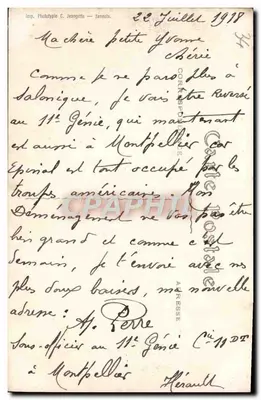 22 Juillet 1918
Ma chère petite Yvonne
chérie
Comme je ne pars plus à
Salonique, je vais être Reversé
au 11e Génie, qui maintenant
est aussi à Montpellier car
Epinal est tout occupé par les
troupes américaines. Mon
Demenagement ne va pas être
bien grand et comme c'est
demain, je t'envoie avec mes
plus doux baisers, ma nouvelle
adresse :
Sous-officier au 11e Génie Cie 11 DT
à Montpellier
Hérault
Carte Postale
CORRESPONDANCE
ADRESSE
CPAPHIL